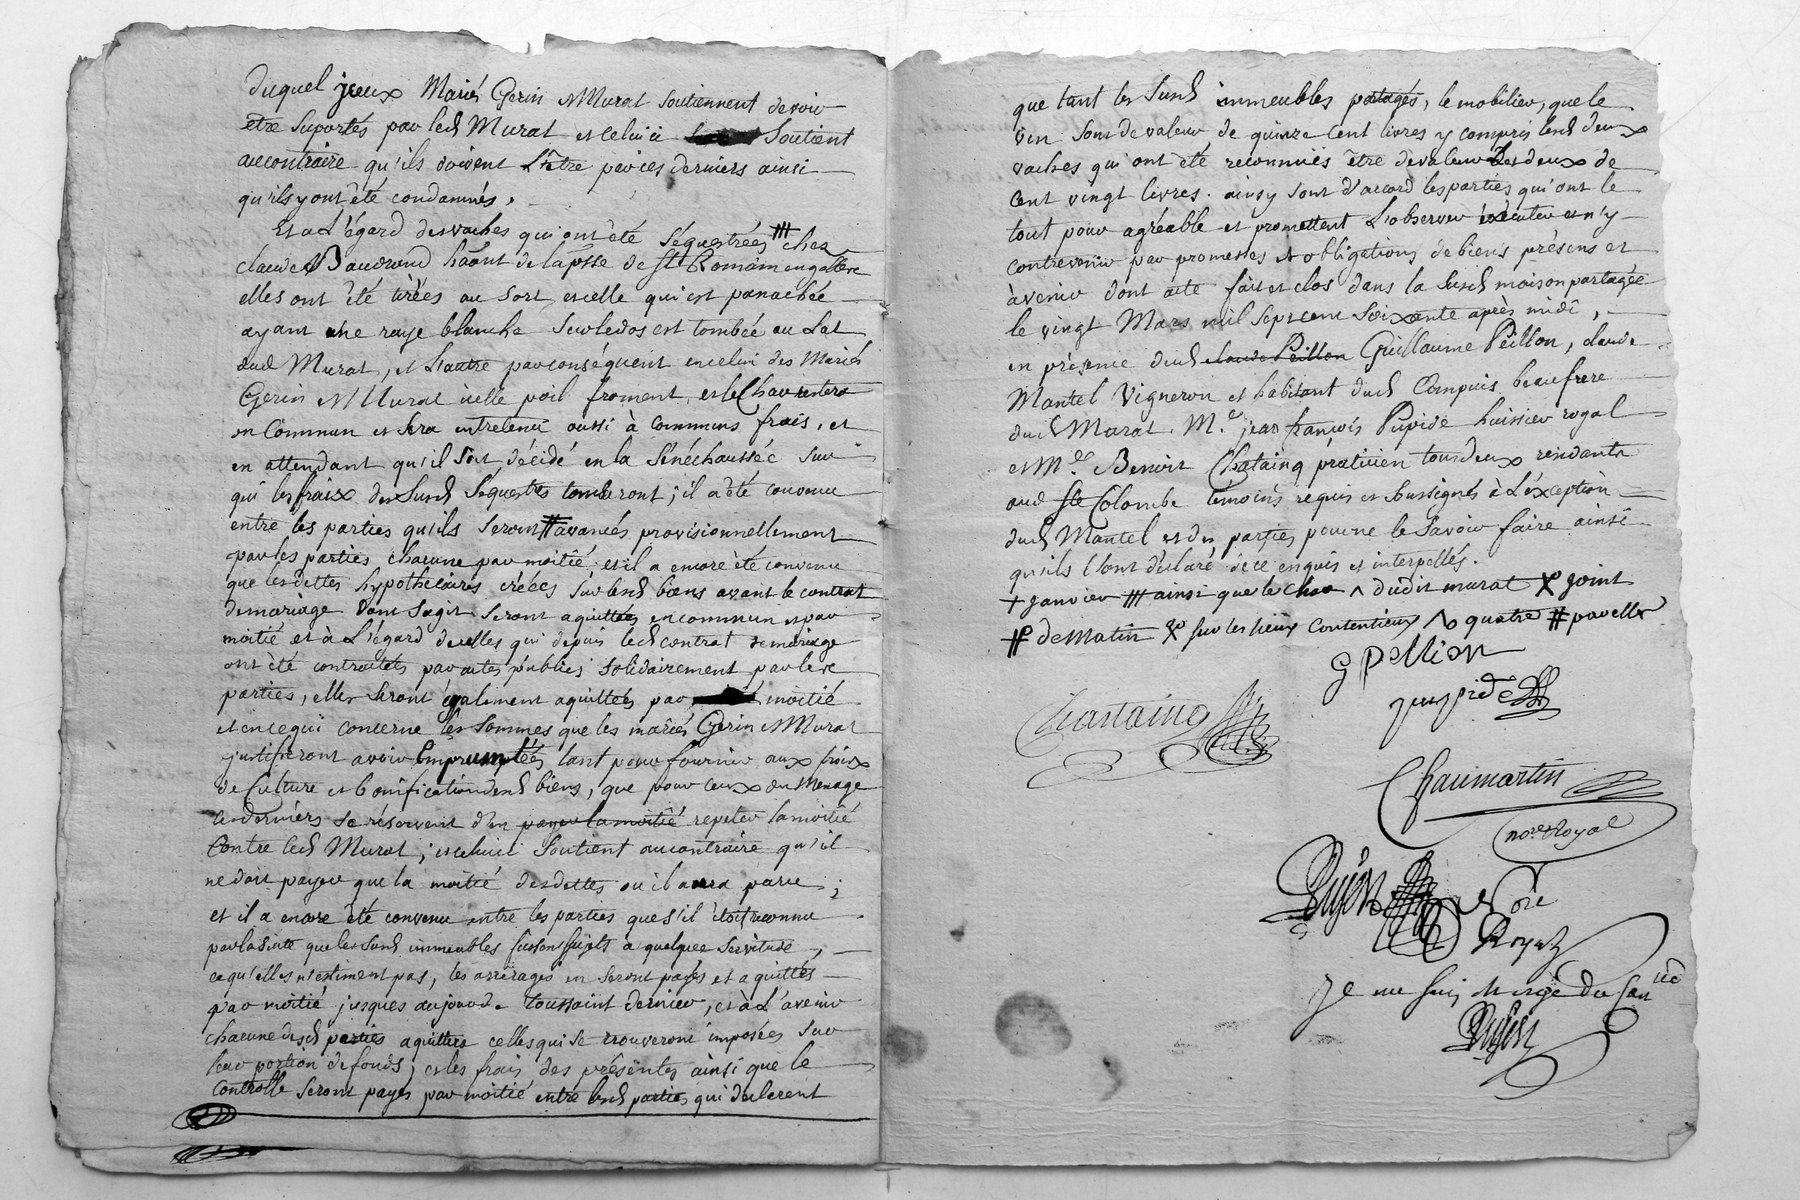 duquel jceux Mariés Gerin & Murat soutiennent devoir
etre suportés par led Murat et celuici soutient
aucontraire qu'ils doivent L'être par ces derniers ainsi
qu'ils y ont été condamnés.
Et a L'égard des vaches qui ont été séquestrées chez
claude Baudrand háánt de la psse de St Romain en gallere
elles ont été tirées au sort, et celle qui est panachée
ayant une raye blanche sur le dos est tombée au Lot
dud Murat, et L'autre par conséquent en celui des Mariés
Gerin & Murat icelle poil froment, et le Char restera
en Commun et sera entretenu aussi à communs frais, et
en attendant qu'il soit décidé en la Sénéchaussée sur
qui les fraix des Susd séquestres tomberont; il a été convenu
entre les parties qu'ils seront # avancés provisionnellement
par les parties chacune par moitié et il a encore été convenu
que les dettes hypothécaires créées sur lesd biens avant le contrat
de mariage dont s'agit seront aquittées en commun et par
moitié et à L'égard de celles qui depuis led contrat de mariage
ont été contractées par actes publics solidairement par les
parties, elles seront également aquittées par moitié
et en ce qui concerne les sommes que les mariés Gerin & Murat
justifieront avoir Empruntées tant pour fournir aux fraix
de Culture et bonification desd biens, que pour ceux du Menage
ces derniers se réservent d'en payer la moitié repeter la moitié
Contre led Murat; et celuici soutient aucontraire qu'il
ne doit payer que la moitié des dettes ou il aura paru;
et il a encore été convenu entre les parties que s'il étoit reconnu
par la suite que les susd immeubles fussent sujets a quelque servitude,
ce qu'elles n'estiment pas, les arrérages en seront payés et aquittés
par moitié jusques au jour de toussaint dernier, et à L'avenir
chacune desd parties aquittera celles qui se trouveront imposées sur
leur portion de fonds; et les frais des présentes ainsi que le
Controlle seront payés par moitié entre lesd parties qui déclarent
que tant les susd immeubles partagés, le mobilier, que le
vin sont de valeur de quinze cent livres y compris lesd deux
vaches qui ont été reconnues être de valeur les deux de
cent vingt livres. ainsy sont d'accord les parties qui ont le
tout pour agréable et promettent L'observer exécuter et n'y
contrevenir par promesses et obligations de biens présens et
àvenir dont acte fait et clos dans la susd maison partagée
le vingt Mars mil sept cent soixante après midi,
en présence dud claude Peillon Guillaume Peillon, claude
Mantel Vigneron et habitant dud Compuis beaufrere
dud Murat. Me. jean françois Pupide huissier royal
et Me. Benoit Chataing praticien tous deux residants
aud Ste Colombe témoins requis et soussignés à L'éxception
dud Mantel et des parties pour ne le savoir faire ainsi
qu'ils l'ont déclaré de ce enquis et interpellés.
+ janvier ainsi que le Char ^ dudit murat joint
de matin sur les lieux contentieux quatre # par elles
G Pellion
puspide
Chastaing
Chaumartin
nore Royal
Pujon Nore
Royal